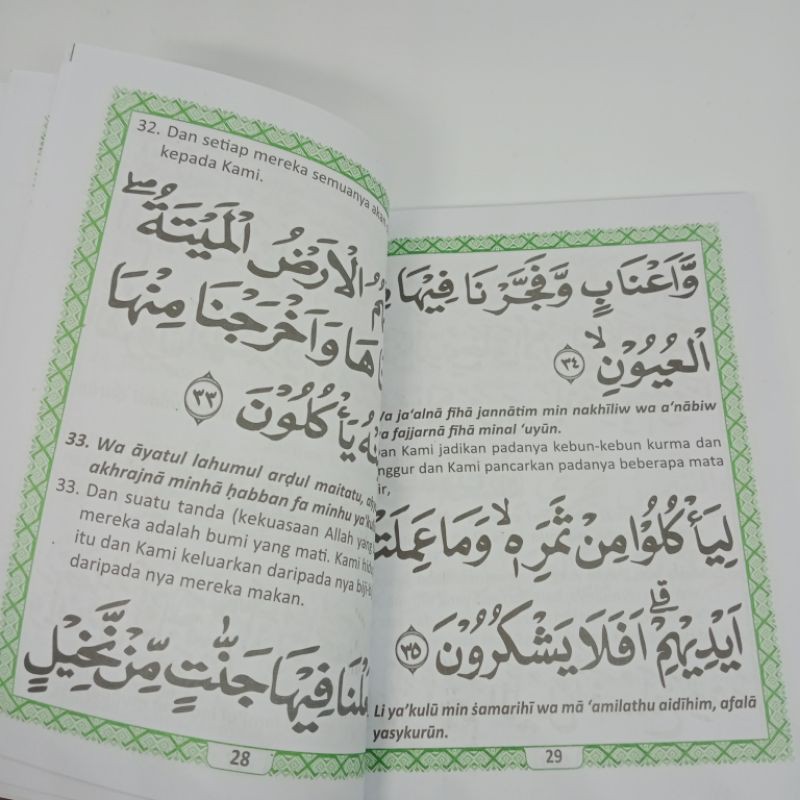 32. Dan setiap mereka semuanya akan
kepada Kami.
الْاَرْضُ الْمَيْتَةُ ۖ
وَاَخْرَجْنَا مِنْهَا
يَأْكُلُوْنَ ٣٣
33. Wa āyatul lahumul arḍul maitatu,
akhrajnā minhā ḥabban fa minhu
33. Dan suatu tanda (kekuasaan Allah yang
mereka adalah bumi yang mati. Kami
itu dan Kami keluarkan daripada nya
daripada nya mereka makan.
فِيْهَا جَنّٰتٍ مِّنْ نَّخِيْلٍ
28
وَّاَعْنَابٍ وَّفَجَّرْنَا فِيْهَا
الْعُيُوْنِۙ ٣٤
ja‘alnā fīhā jannātim min nakhīliw wa a‘nābiw
fajjarnā fīhā minal ‘uyūn.
Kami jadikan padanya kebun-kebun kurma dan
nggur dan Kami pancarkan padanya beberapa mata
ir,
لِيَأْكُلُوْا مِنْ ثَمَرِهٖۙ وَمَا عَمِلَتْ
اَيْدِيْهِمْ ۗ اَفَلَا يَشْكُرُوْنَ ٣٥
Li ya’kulū min ṡamarihī wa mā ‘amilathu aidīhim, afalā
yasykurūn.
29